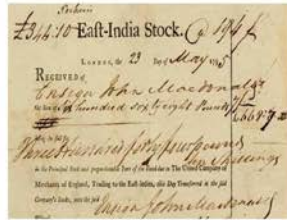 £344:10 East-India Stock. @ 194
LONDON, the 23 Day of May 1795
RECEIVED of
Ensign John Macdonald
the Sum of Six hundred sixty eight Pounds
668:7:2
Three Hundred forty four pounds
ten Shillings
in the Principal Stock and proportional Part of the Fund due to The United Company of
Merchants of England, Trading to the East-Indies, this Day Transferred in the said
Company's Books, unto the said
Ensign John Macdonald